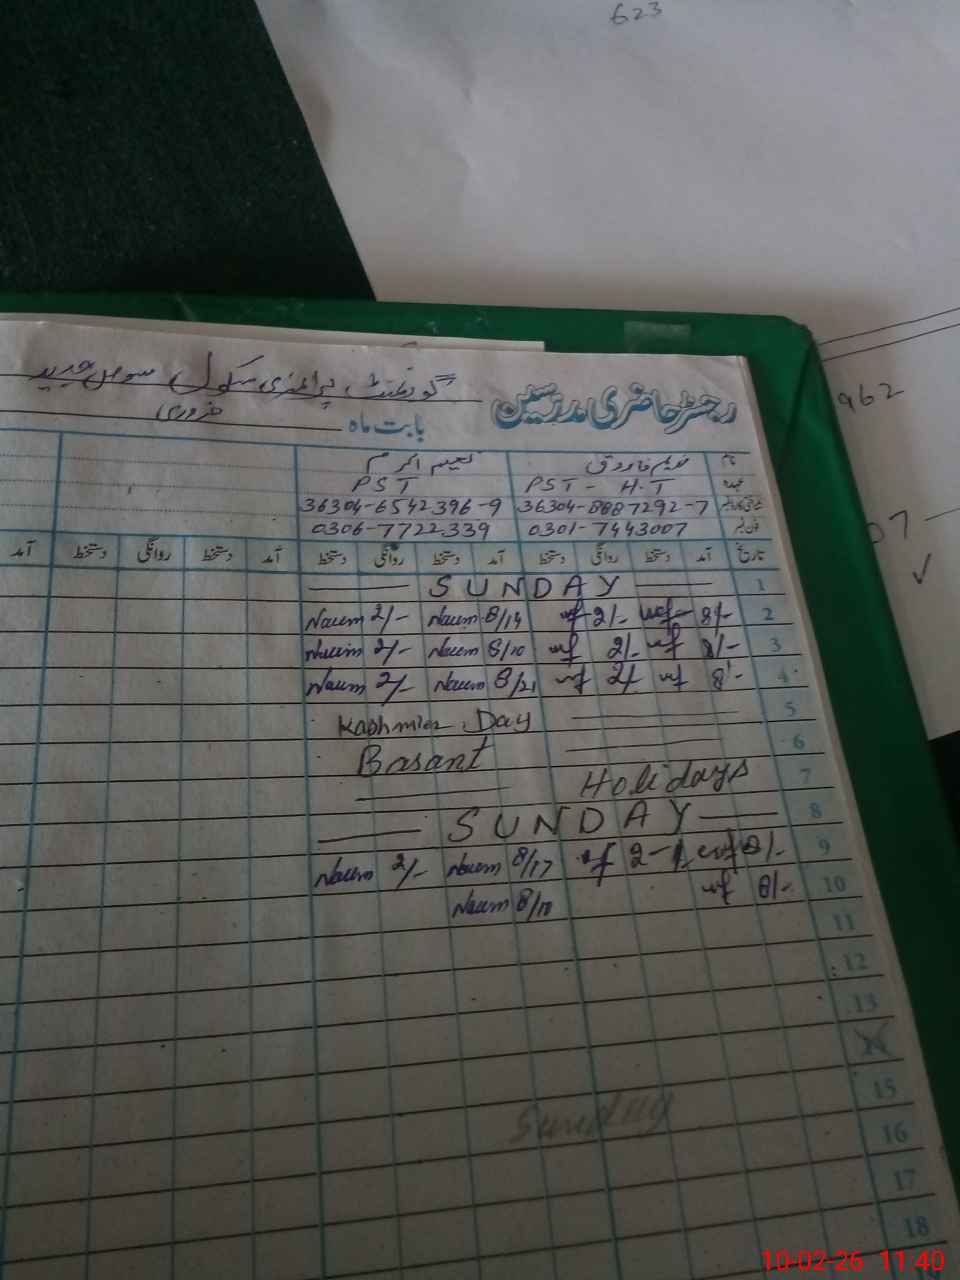 623
962
07
رجسٹر حاضری مدرسین گورنمنٹ پرائمری سکول
بابت ماہ فروری
نام نعیم اکرم
عہدہ PST - H.T PST
36304-8887292-7 36304-6542396-9
0301-7443007 0306-7722339
تاریخ آمد دستخط روانگی دستخط آمد دستخط روانگی دستخط آمد دستخط روانگی دستخط آمد
1 SUNDAY
2 8/- 2/- Naeem 8/14 Naeem 2/-
3 8/- 2/- Naeem 8/10 Naeem 2/-
4 8/- 2/- Naeem 8/21 Naeem 2/-
5 Kashmier Day
6 Basant
7 Holidays
8 SUNDAY
9 8/- 2-/ Naeem 8/17 Naeem 2/-
10 8/- Naeem 8/18
11
12
13
14
15 Sunday
16
17
18
10-02-26 11:40